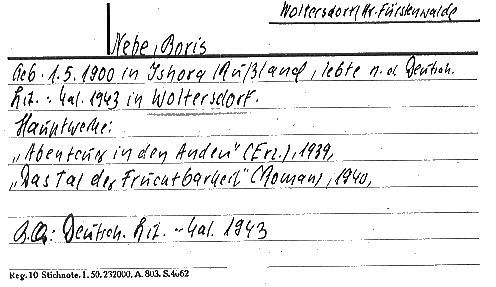 Woltersdorf/Kr. Fürstenwalde
Nebe, Boris
Geb. 1.5.1900 in Ishora/Rußland, lebte n. d. Deutsch.
Lit.-Kal. 1943 in Woltersdorf.
Hauptwerke:
„Abenteuer in den Anden" (Erz.), 1939,
„Das Tal der Fruchtbarkeit" (Roman), 1940,
B.Q.: Deutsch. Lit.-Kal. 1943
Reg. 10 Stichnote. I. 50. 232000. A. 803. S. 4662